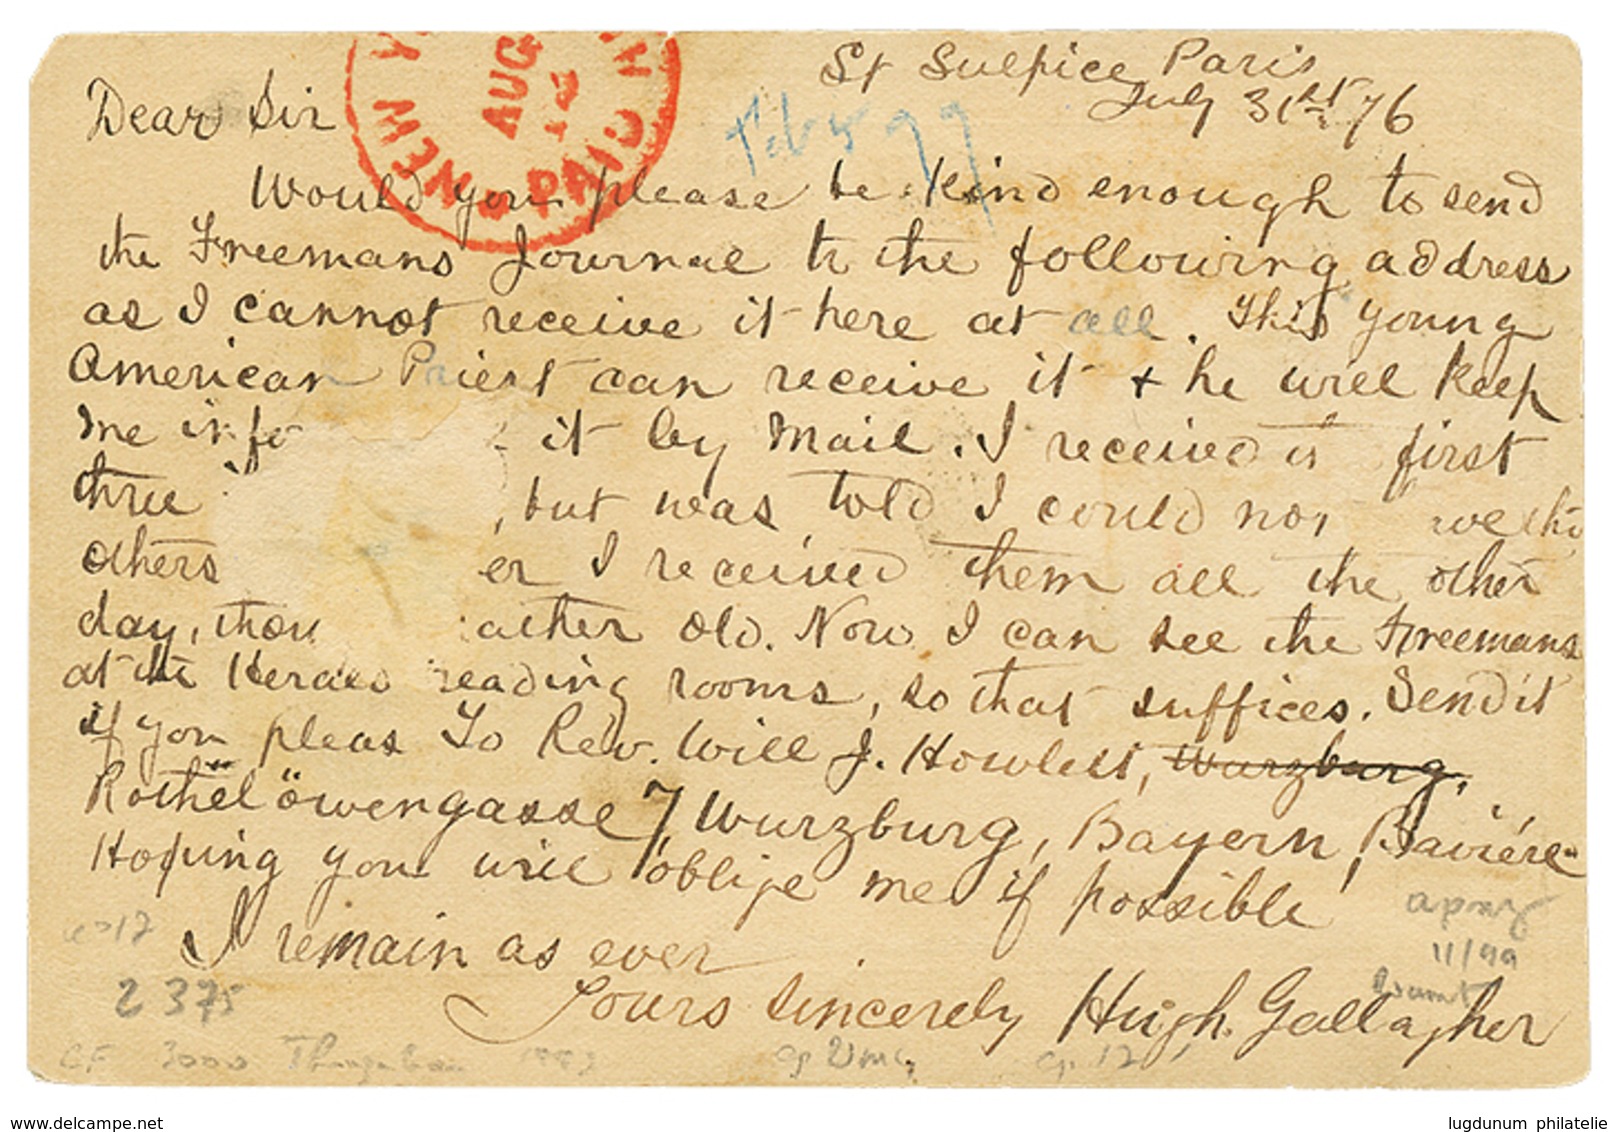 St Sulpice Paris
July 31st 76
NEW Y
AUG
12
PAID
Dear Sir
Feb 5 77
Would you please be kind enough to send
the Freemans Journal to the following address
as I cannot receive it here at all. This young
American Priest can receive it + he will keep
me info it by Mail. I received it first
three , but was told I could not
others er I received them all the other
day, thou rather old. Now I can see the Freemans
at the Herald reading rooms, so that suffices. Send it
if you pleas To Rev. Will J. Howlett, Wurzburg,
Rothelöwengasse 7, Wurzburg, Bayern, Baviére
Hoping you will oblige me if possible
I remain as ever
Yours Sincerely Hugh Gallagher
11/99
2 375
3000
cp 12
www.delcampe.net
lugdunum philatelie